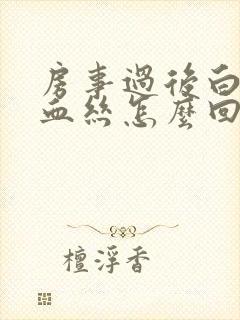 房事過後白
血絲怎麼回
檀浮香